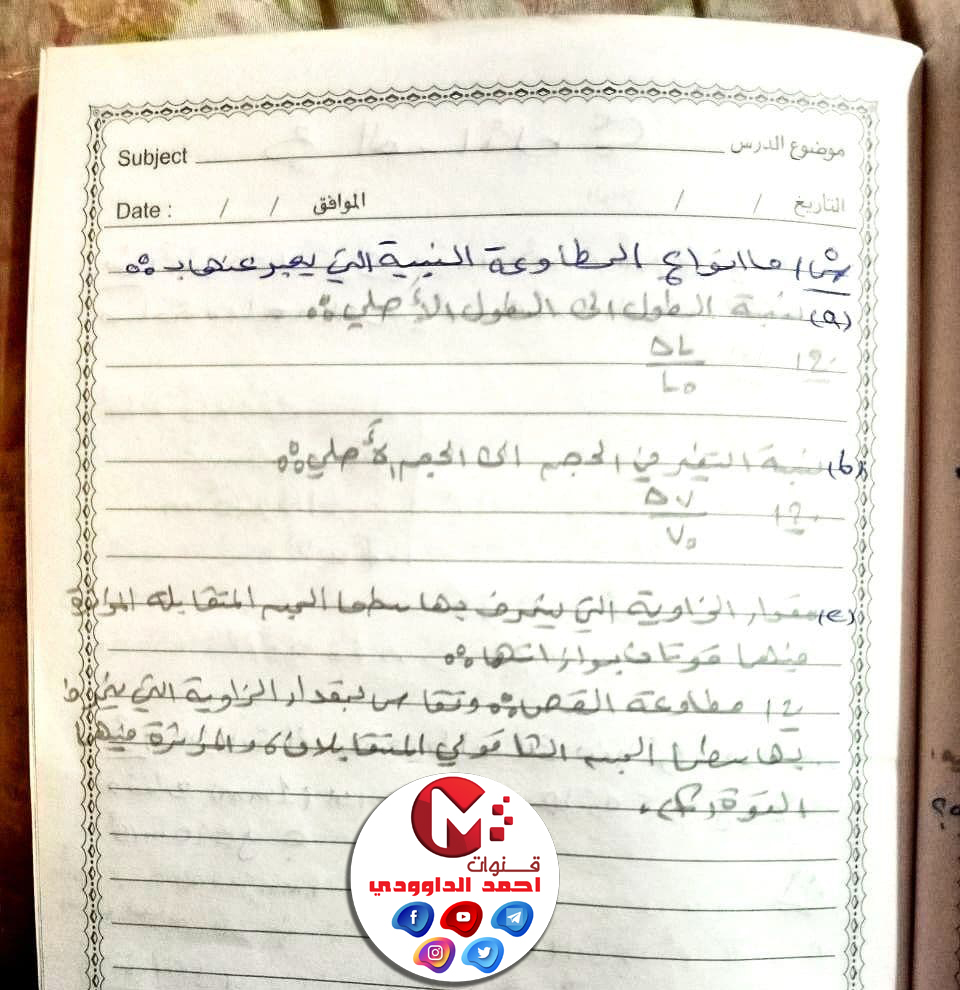 Subject موضوع الدرس
Date : / / الموافق / / التاريخ
س١/ ما انواع المطاوعة النسبية التي يعبر عنها بـ:
(a) نسبة الطول الى الطول الأصلي:
ج١ ΔL
L₀
(b) نسبة التغير في الحجم الى الحجم الأصلي:
ج١ ΔV
V₀
(c) مقدار الزاوية التي ينحرف بها سطحا الجسم المتقابلة المؤثرة
فيهما قوتان بموازاتها:
ج١ مطاوعة القص: وتقاس بمقدار الزاوية التي ينحرف
بها سطحا الجسم الشاقولي المتقابلان والمؤثرة فيهما
القوة
قنوات
احمد الداوودي